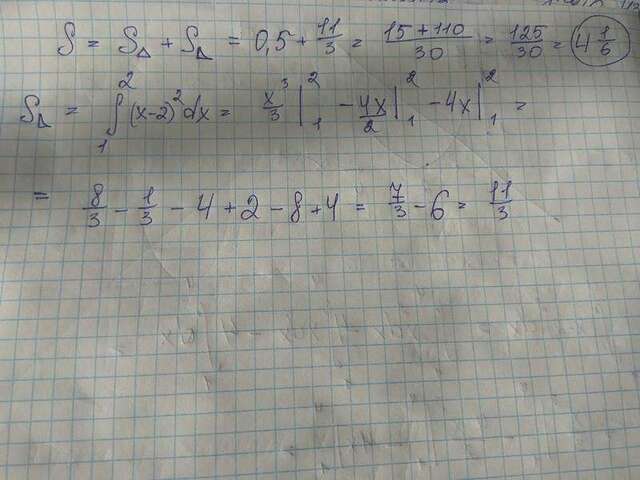 S = S△ + S△ = 0,5 + 11/3 = (15 + 110)/30 = 125/30 = 4 1/6
S△ = ∫₁² (x-2)² dx = x³/3 |₁² - 4x/2 |₁² - 4x |₁² =
= 8/3 - 1/3 - 4 + 2 - 8 + 4 = 7/3 - 6 = 11/3